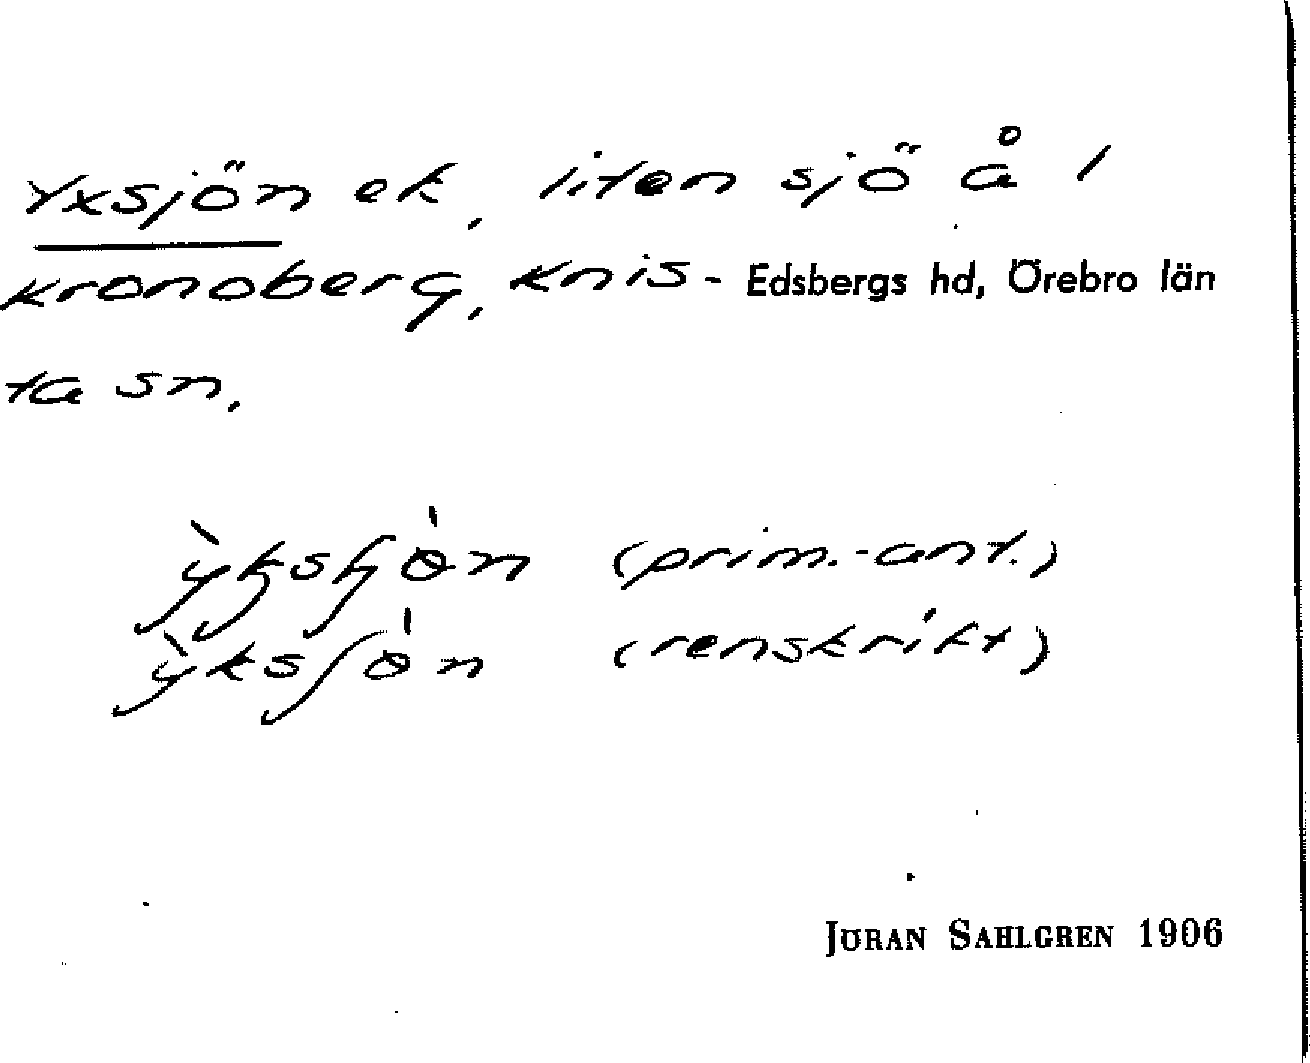 Yxsjön ek, liten sjö å 1
Kronoberg, Knis- Edsbergs hd, Örebro län
ta sn.
(prim.-ant.)
(renskrift)
JÖRAN SAHLGREN 1906